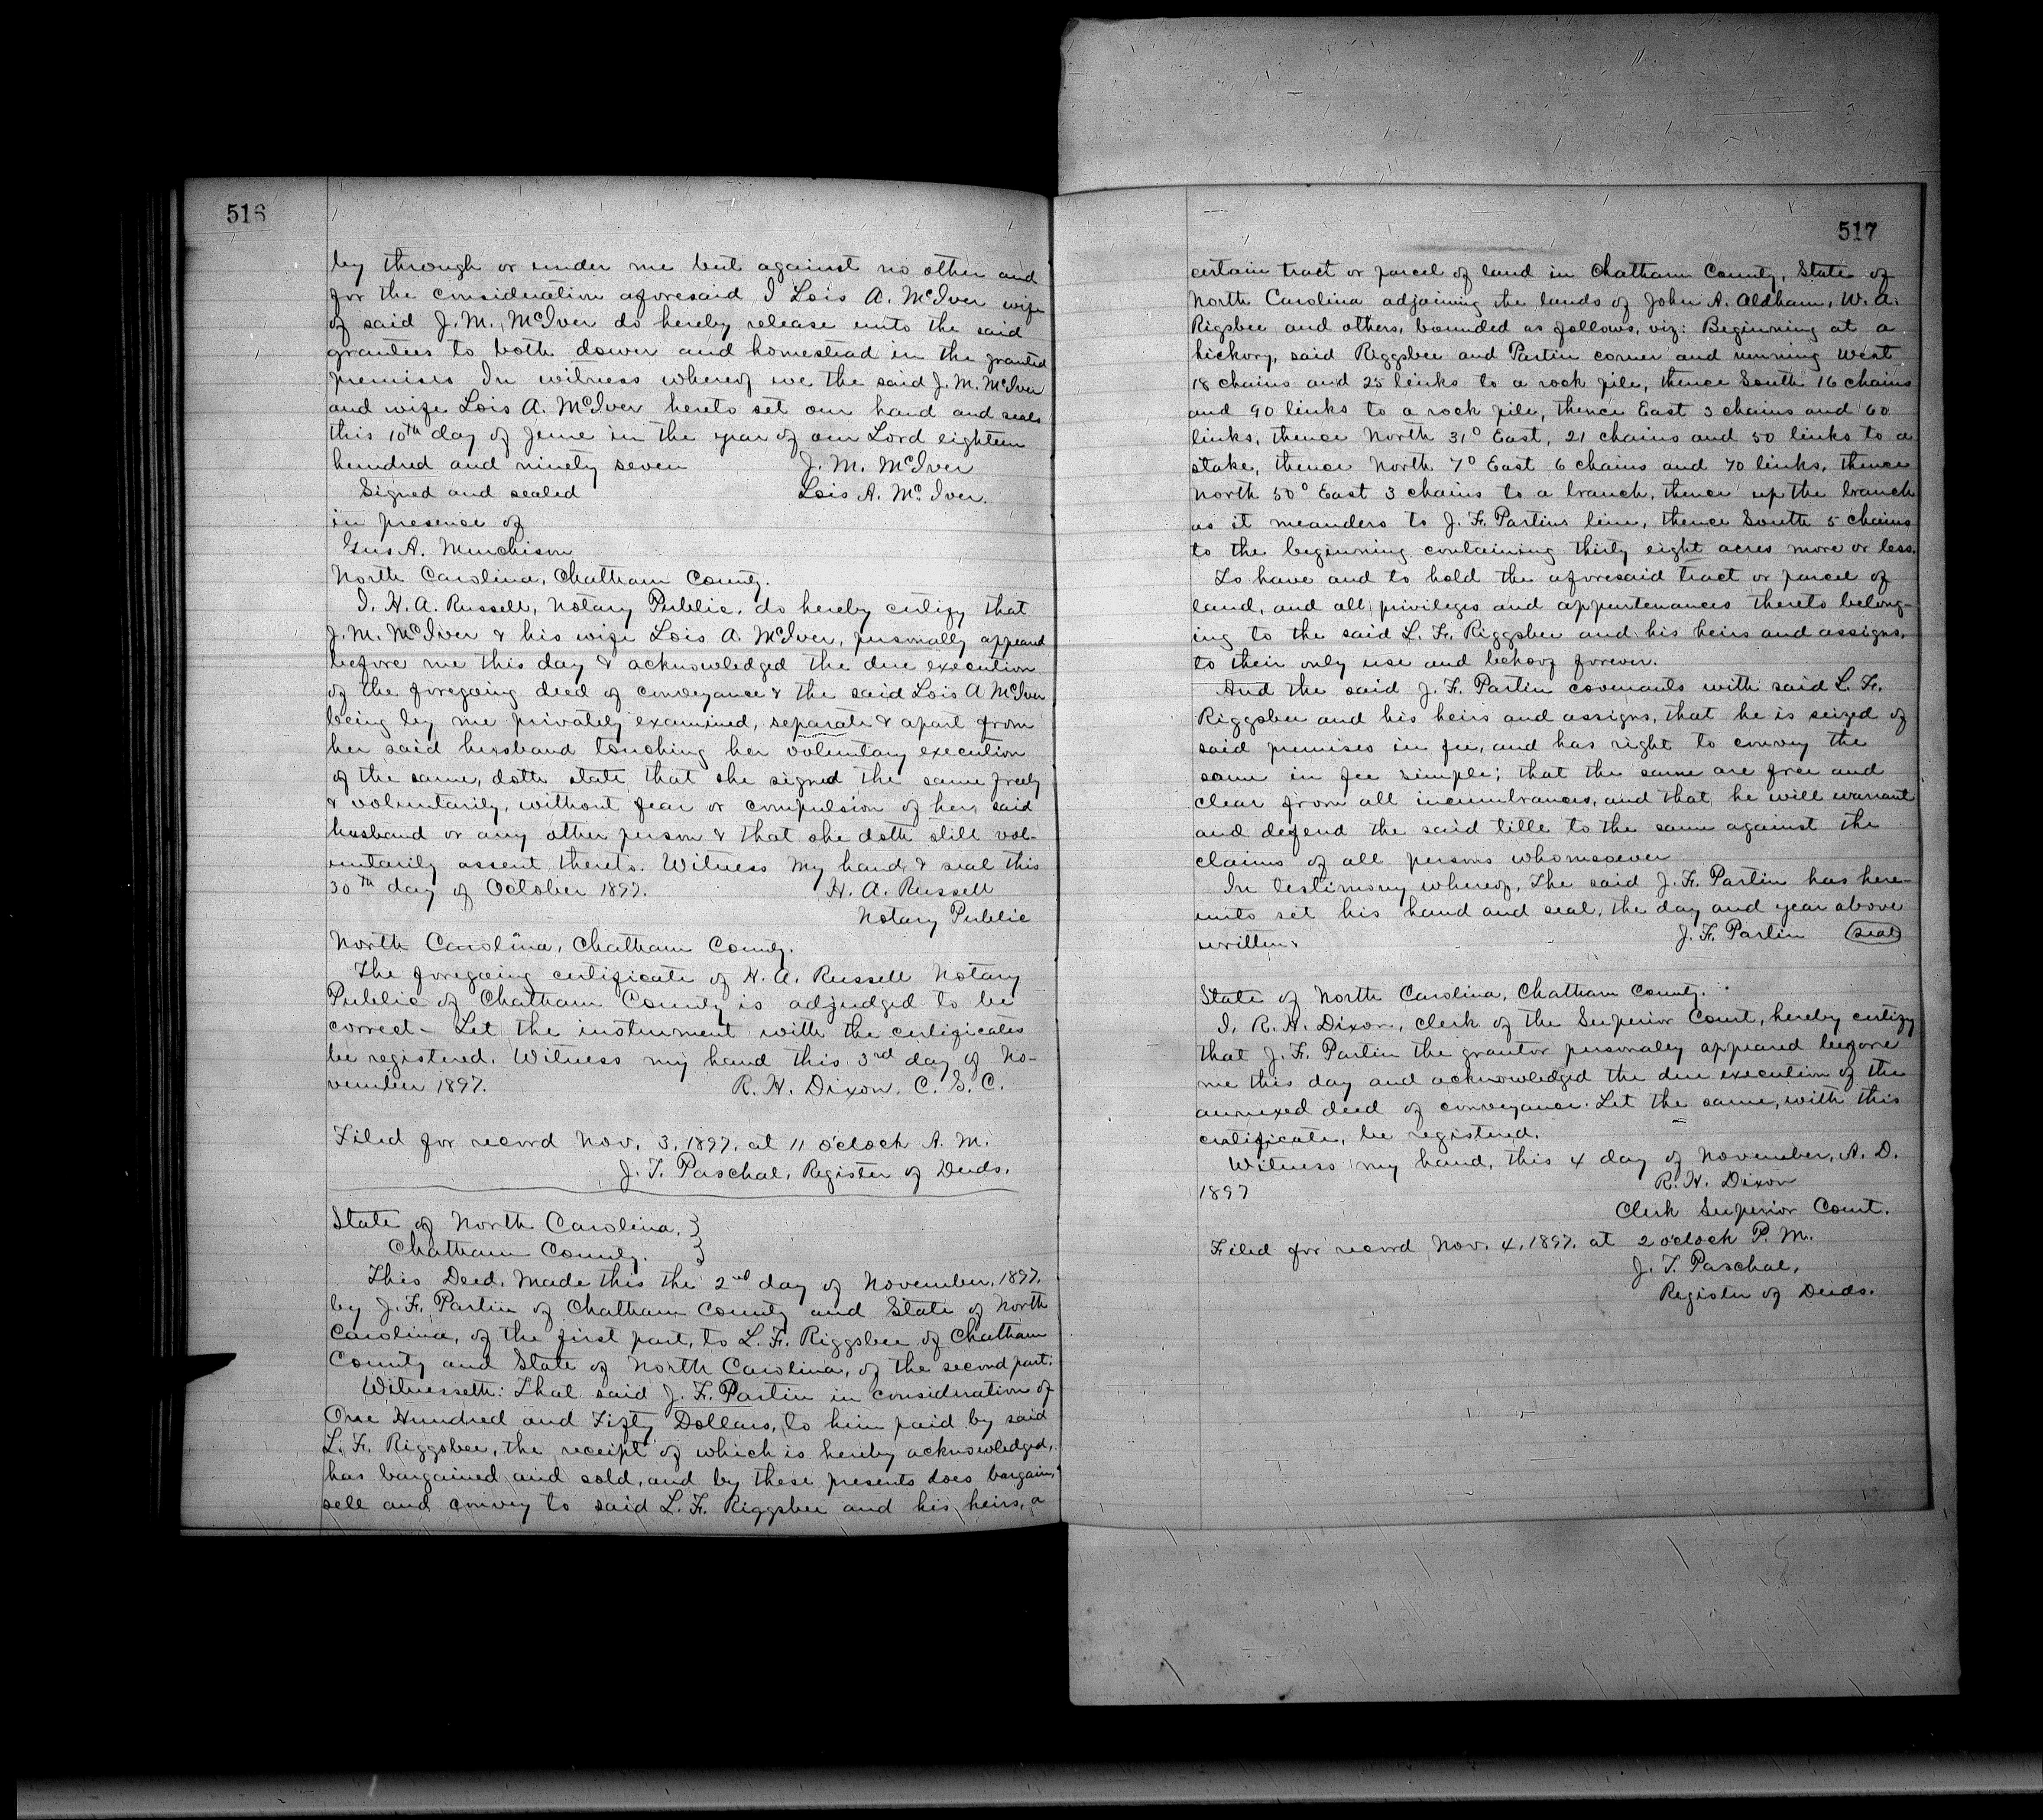 516
by through or under me but against no other and
for the consideration aforesaid I Lois A. McIver wife
of said J. M. McIver do hereby release unto the said
grantees to both dower and homestead in the granted
premises In witness whereof we the said J. M. McIver
and wife Lois A. McIver hereto set our hand and seals
this 10th day of June in the year of our Lord eighteen
hundred and ninety seven J. M. McIver
Signed and sealed Lois A. McIver.
in presence of
Gus A. Murchison
North Carolina, Chatham County.
I. H. A. Russell, Notary Public, do hereby certify that
J. M. McIver & his wife Lois A. McIver, personally appeard
before me this day & acknowledged the due execution
of the foregoing deed of conveyance & the said Lois A McIver
being by me privately examined, separate & apart from
her said husband touching her voluntary execution
of the same, doth state that she signed the same freely
& voluntarily, without fear or compulsion of her said
husband or any other person & that she doth still vol-
untarily assent thereto. Witness my hand & seal this
30th day of October 1897. H. A. Russell
Notary Public
North Carolina, Chatham County.
The foregoing certificate of H. A. Russell Notary
Public of Chatham County is adjudged to be
correct - Let the instrument with the certificates
be registered. Witness my hand this 3rd day of No-
vember 1897. R. H. Dixon, C. S. C.
Filed for record Nov. 3, 1897, at 11 o'clock A. M.
J. T. Paschal, Register of Deeds.
State of North Carolina, }
Chatham County. }
This Deed, Made this the 2nd day of November, 1897,
by J. F. Partin of Chatham County and State of North
Carolina, of the first part, to L. F. Riggsbee of Chatham
County and State of North Carolina, of the second part:
Witnesseth: That said J. F. Partin in consideration of
One Hundred and Fifty Dollars, to him paid by said
L. F. Riggsbee, the receipt of which is hereby acknowledged,
has bargained and sold, and by these presents does bargain,
sell and convey to said L. F. Riggsbee and his heirs, a
517
certain tract or parcel of land in Chatham County, State of
North Carolina adjoining the lands of John A. Oldham, W. A.
Rigsbee and others, bounded as follows, viz: Beginning at a
hickory, said Riggsbee and Partin corner and running West
18 chains and 25 links to a rock pile, thence South 16 chains
and 90 links to a rock pile, thence East 3 chains and 60
links, thence North 31° East, 21 chains and 50 links to a
stake, thence North 7° East 6 chains and 70 links, thence
North 50° East 3 chains to a branch, thence up the branch
as it meanders to J. F. Partins line, thence South 5 chains
to the beginning containing thirty eight acres more or less.
To have and to hold the aforesaid tract or parcel of
land, and all privileges and appurtenances thereto belong-
ing to the said L. F. Riggsbee and his heirs and assigns,
to their only use and behoof forever.
And the said J. F. Partin covenants with said L. F.
Riggsbee and his heirs and assigns, that he is seized of
said premises in fee, and has right to convey the
same in fee simple; that the same are free and
clear from all incumbrances, and that he will warrant
and defend the said title to the same against the
claims of all persons whomsoever
In testimony whereof, The said J. F. Partin has here-
unto set his hand and seal, the day and year above
written. J. F. Partin (seal)
State of North Carolina, Chatham County.
I, R. H. Dixon, Clerk of the Superior Court, hereby certify
that J. F. Partin the grantor personaley appeared before
me this day and acknowledged the due execution of the
annexed deed of conveyance. Let the same, with this
certificate, be registered.
Witness my hand, this 4 day of November, A. D.
1897 R. H. Dixon
Clerk Superior Court.
Filed for record Nov. 4, 1897, at 2 o'clock P. M.
J. T. Paschal,
Register of Deeds.